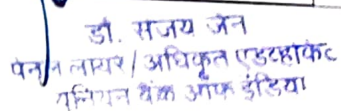 डॉ. संजय जैन
पेनल लायर/अधिकृत एडव्होकेट
यूनियन बैंक आफ इंडिया